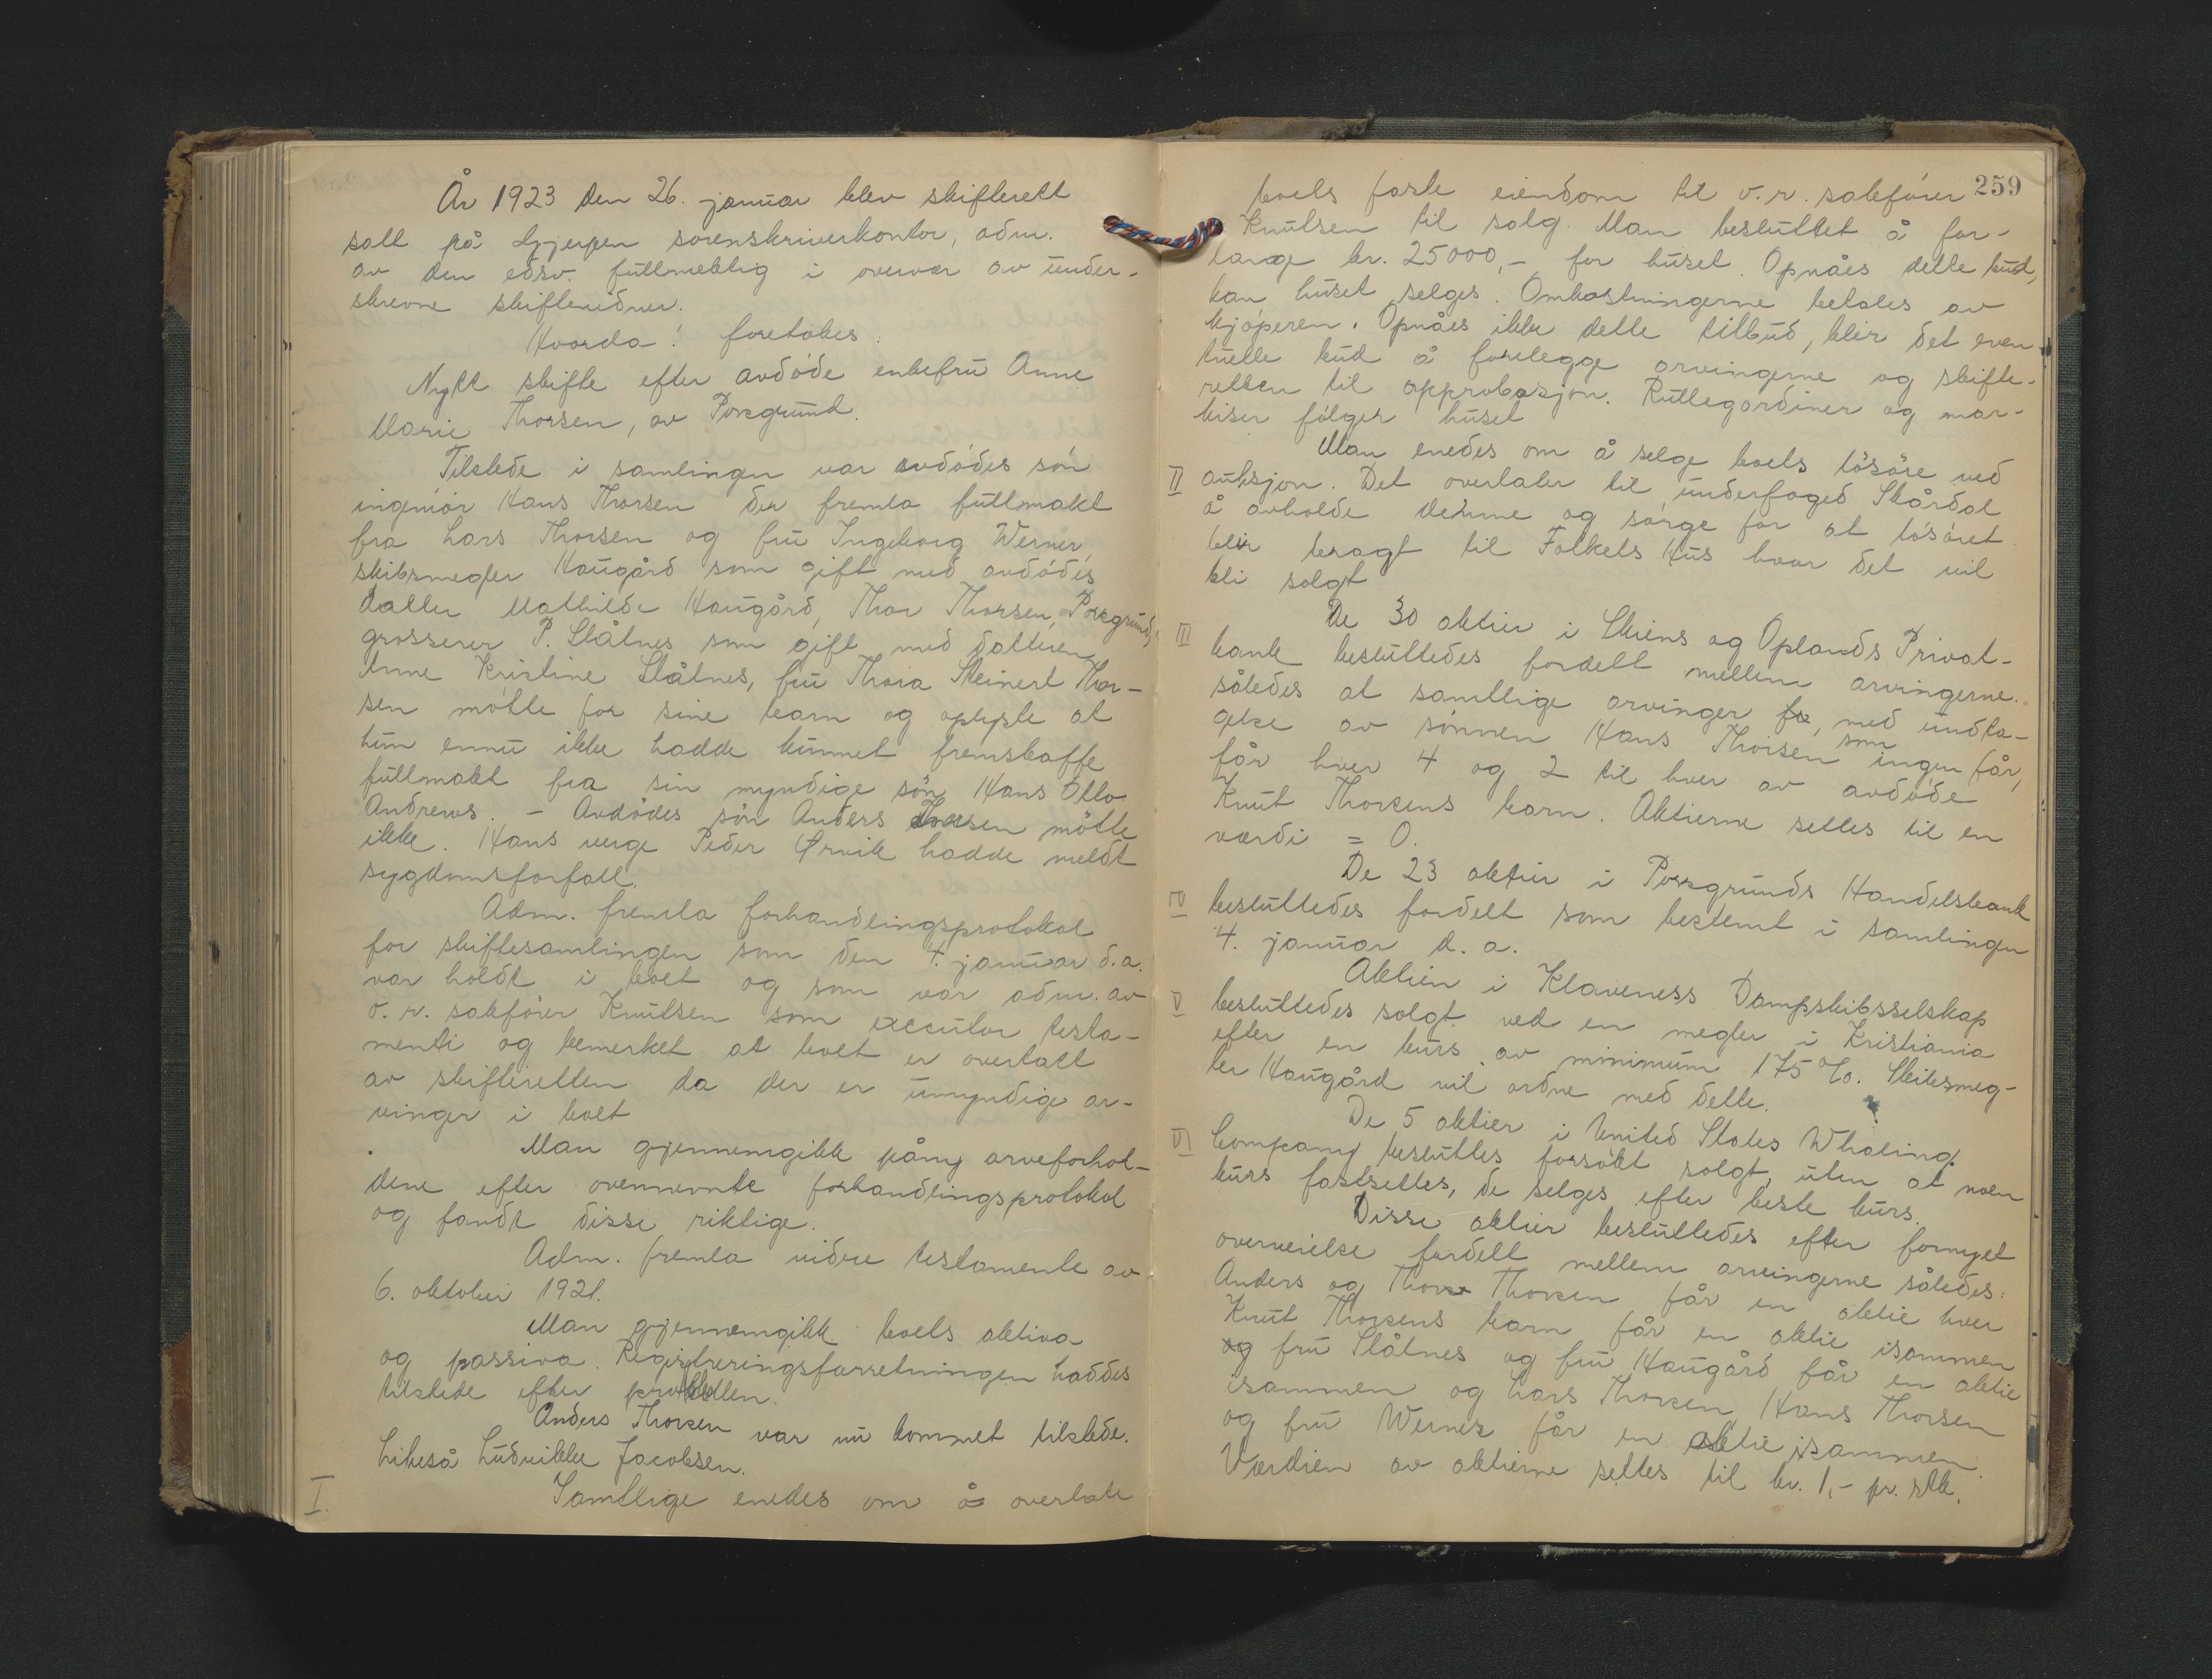 År 1923 den 26. januar blev skifterett
satt på Gjerpen sorenskriverkontor, adm.
av den edsv. fullmektig i overvær av under-
skrevne skiftevidner.
Hvorda! foretokes:
Nytt skifte efter avdøde enkefru Anne
Marie Thorsen, av Porsgrund.
Tilstede i samlingen var avdødes søn
ingeniør Hans Thorsen der fremla fullmakt
fra Lars Thorsen og fru Ingeborg Werner,
skibsmegler Haugård som gift med avdødes
datter Mathilde Haugård, Thor Thorsen, Porsgrund,
grosserer P. Slåtnes som gift med datteren
Anne Kristine Slåtnes, fru Thora Steinert Thor-
sen møtte for sine barn og oplyste at
hun ennu ikke hadde kunnet fremskaffe
fullmakt fra sin myndige søn Hans Otto
Andrews. - Avdødes søn Anders Thorsen møtte
ikke. Hans verge Peder Ørvik hadde meldt
sygdomsforfall.
Adm. fremla forhandlingsprotokol
for skiftesamlingen som den 4. januar d.a.
var holdt i boet og som var adm. av
o.r. sakfører Knutsen som executor testa-
menti og bemerket at boet er overtatt
av skifteretten da der er umyndige ar-
vinger i boet
Man gjennemgikk påny arveforhol-
dene efter ovennevnte forhandlingsprotokol
og fandt disse riktige.
Adm. fremla videre testamente av
6. oktober 1921.
Man gjennemgikk boets aktiva
og passiva. Registreringsforretningen haddes
tilstede efter protokollen.
Anders Thorsen var nu kommet tilstede.
Likeså Ludvikke Jacobsen.
I. Samtlige enedes om å overlate
259
boets faste eiendom til o.r. sakfører
Knutsen til salg. Man besluttet å for-
lange kr. 25000,- for huset. Opnåes dette bud,
kan huset selges. Omkostningerne betales av
kjøperen. Opnåes ikke dette tilbud, blir det even-
tuelle bud å forelegge arvingerne og skifte-
retten til approbasjon. Rullegardiner og mar-
kiser følger huset
Man enedes om å selge boets løsøre ved
II auksjon. Det overlater til underfoged Skårdal
å avholde denne og sørge for at løsøret
blir bragt til Folkets Hus hvor det vil
bli solgt
De 30 aktier i Skiens og Oplands Privat-
III bank besluttedes fordelt mellem arvingerne.
således at samtlige arvinger får, med undta-
gelse av sønnen Hans Thorsen som ingen får,
får hver 4 og 2 til hver av avdøde
Knut Thorsens barn. Aktierne settes til en
værdi = 0.
De 23 aktier i Porsgrunds Handelsbank
IV besluttedes fordelt som bestemt i samlingen
4. januar d. a.
Aktien i Klaveness Dampskibsselskap
V besluttedes solgt ved en megler i Kristiania
efter en kurs av minimum 175 %. Skibsmeg-
ler Haugård vil ordne med dette.
De 5 aktier i United States Whaling
VI Company besluttes forsøkt solgt, uten at noen
kurs fastsettes, de selges efter beste kurs.
Disse aktier besluttedes efter fornyet
overveielse fordelt mellem arvingerne således:
Anders og Thor Thorsen får en aktie hver
Knut Thorsens barn får en aktie isammen
og fru Slåtnes og fru Haugård får en aktie
isammen og Lars Thorsen, Hans Thorsen
og fru Werner får en aktie isammen.
Værdien av aktierne settes til kr. 1,- pr. stk.